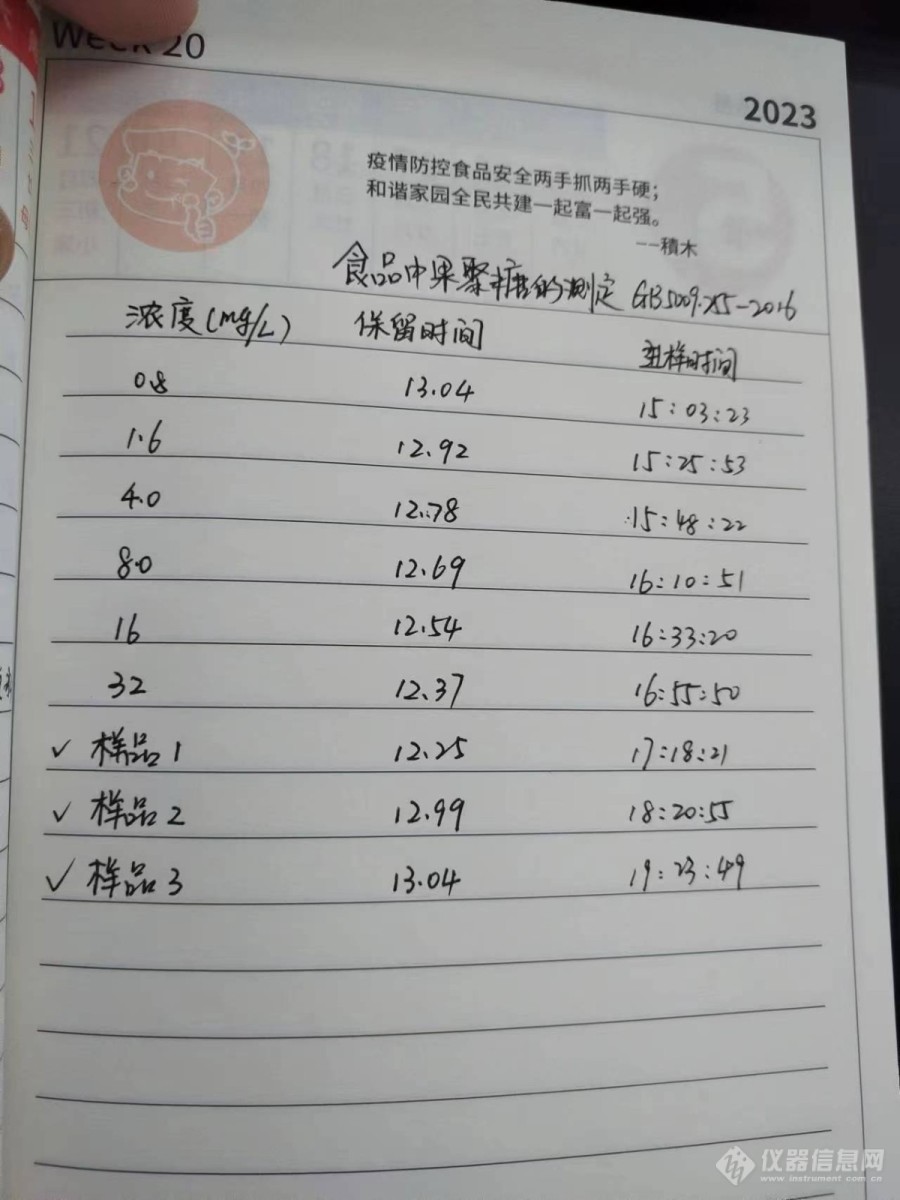 Week 20
2023
疫情防控食品安全两手抓两手硬；
和谐家园全民共建一起富一起强。
--積木
食品中果聚糖的测定 GB5009.255-2016
浓度(mg/L) 保留时间 进样时间
0.8 13.04 15:03:23
1.6 12.92 15:25:53
4.0 12.78 15:48:22
8.0 12.69 16:10:51
16 12.54 16:33:20
32 12.37 16:55:50
✓ 样品1 12.25 17:18:21
✓ 样品2 12.99 18:20:55
✓ 样品3 13.04 19:23:49
仪器信息网
www.instrument.com.cn